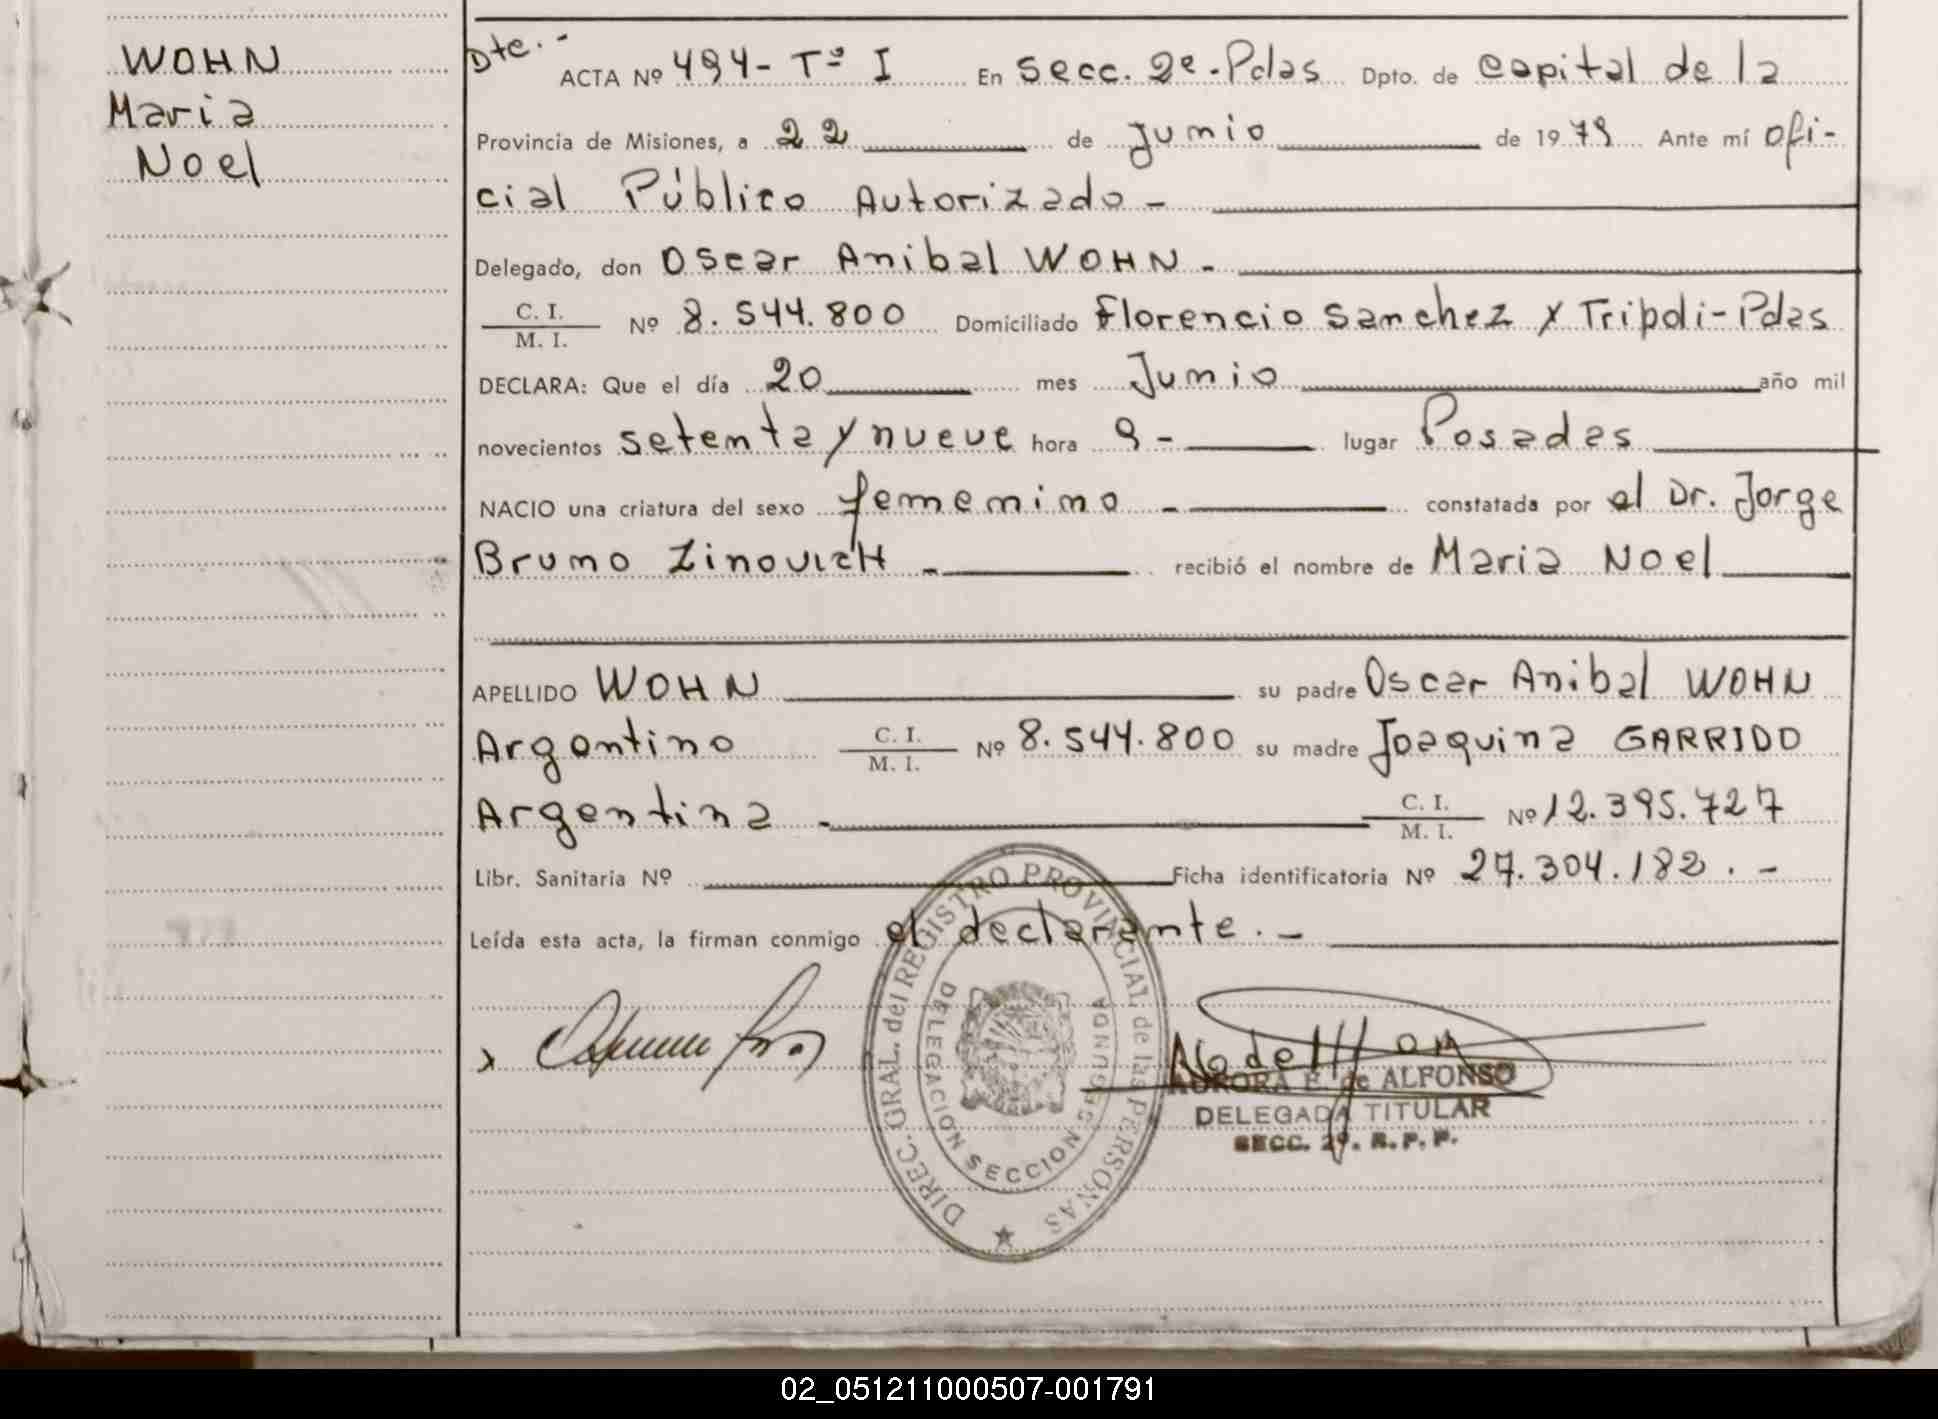 WOHN
Maria
Noel
Dte.-
ACTA Nº 494- Tº I En Secc. 2ª-Pdas Dpto. de Capital de la
Provincia de Misiones, a 22 de Junio de 1979 Ante mí Ofi-
cial Público Autorizado-
Delegado, don Oscar Anibal WOHN-
C. I.
M. I.
Nº 8.544.800 Domiciliado Florencio Sanchez y Tripoli-Pdas
DECLARA: Que el día 20 mes Junio año mil
novecientos setenta y nueve hora 9- lugar Posadas
NACIO una criatura del sexo femenino - constatada por el Dr. Jorge
Bruno ZinovicH - recibió el nombre de Maria Noel
APELLIDO WOHN su padre Oscar Anibal WOHN
Argentino C. I. / M. I. Nº 8.544.800 su madre Joaquina GARRIDO
Argentina - C. I. / M. I. Nº 12.395.727
Libr. Sanitaria Nº Ficha identificatoria Nº 27.304.182.-
Leída esta acta, la firman conmigo el declarante.-
DIREC. GRAL. del REGISTRO PROVINCIAL de las PERSONAS
DELEGACION SECCION SEGUNDA
AURORA E. de ALFONSO
DELEGADA TITULAR
SECC. 2ª. R. P. P.
02_051211000507-001791